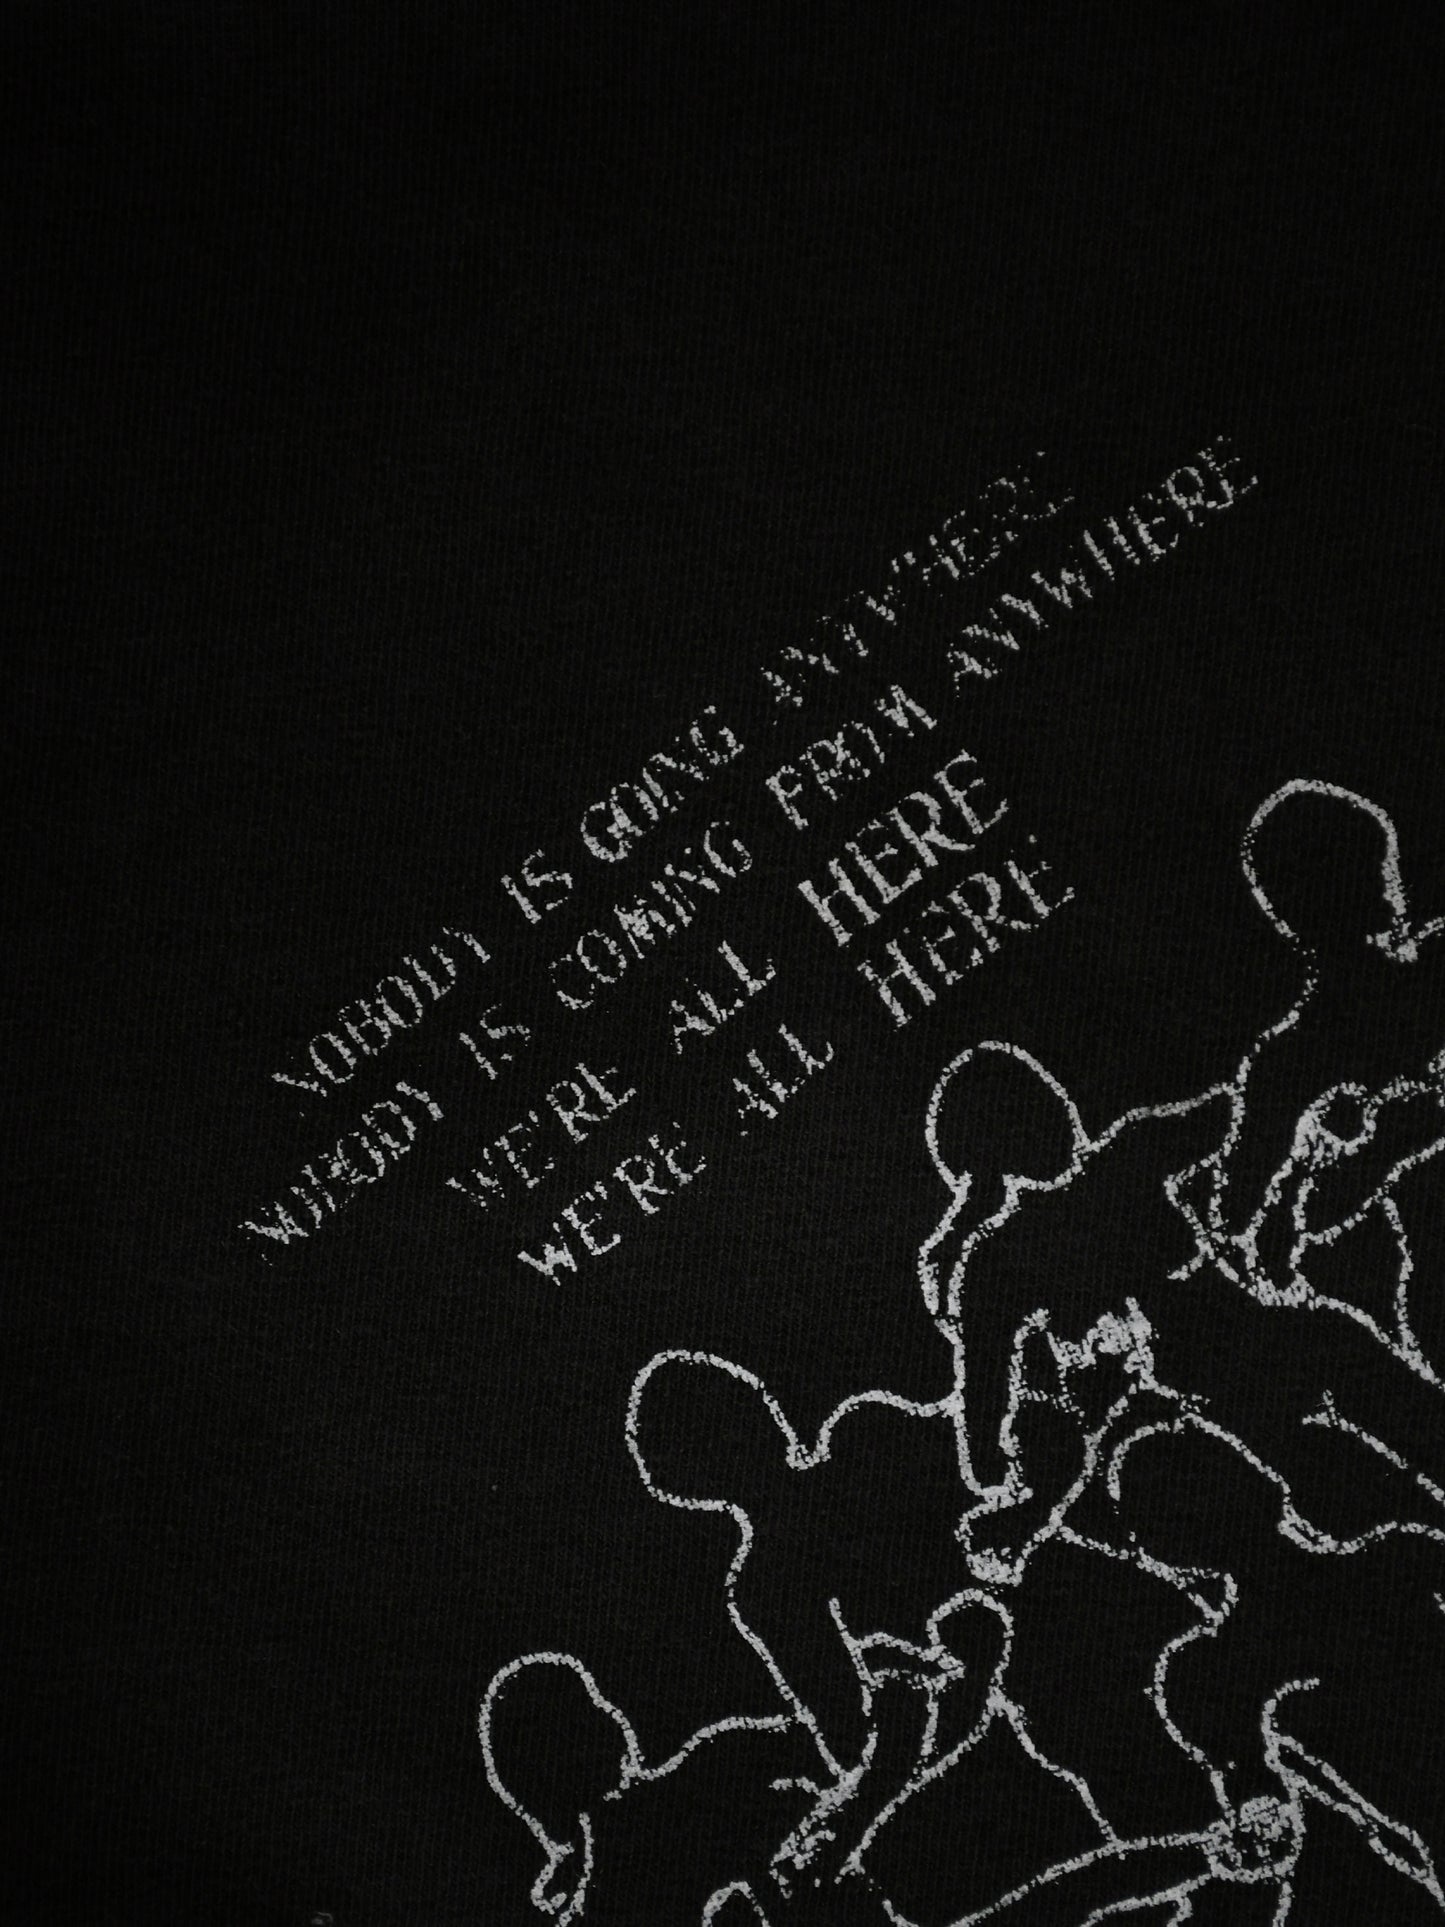 NOBODY IS GOING ANYWHERE
NOBODY IS COMING FROM ANYWHERE
WE'RE ALL HERE
WE'RE ALL HERE